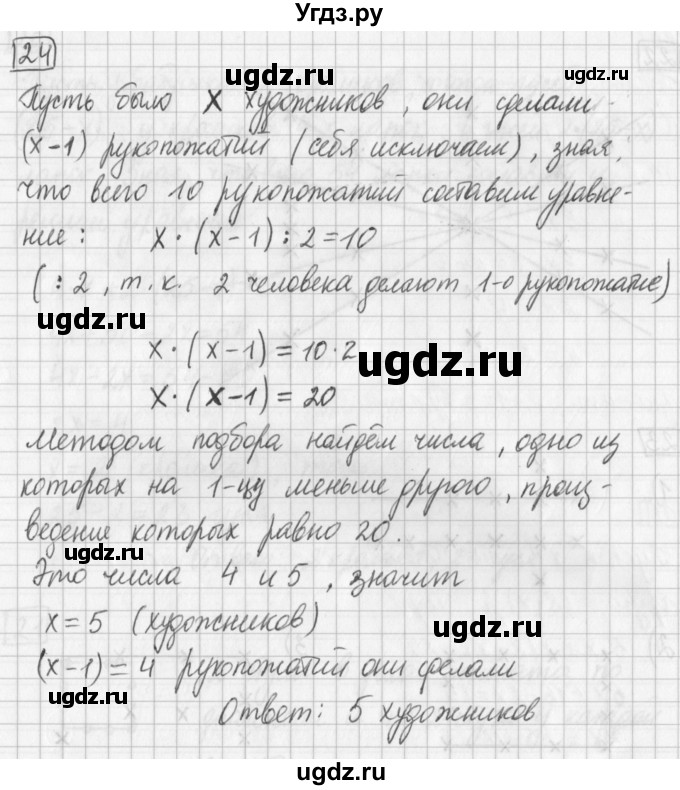 Угдз.ру
24
ugdz.ru
Пусть было x художников, они сделали
(x-1) рукопожатий (себя исключаем), зная,
что всего 10 рукопожатий составим уравне-
ние: x·(x-1):2=10
(:2, т.к. 2 человека делают 1-о рукопожатие)
ugdz.ru
x·(x-1)=10·2
ugdz.ru
x·(x-1)=20
Методом подбора найдём числа, одно из
которых на 1-цу меньше другого, произ-
ведение которых равно 20.
ugdz.ru
Это числа 4 и 5, значит
x=5 (художников)
ugdz.ru
(x-1)=4 рукопожатий они сделали
ugdz.ru
Ответ: 5 художников
ugdz.ru